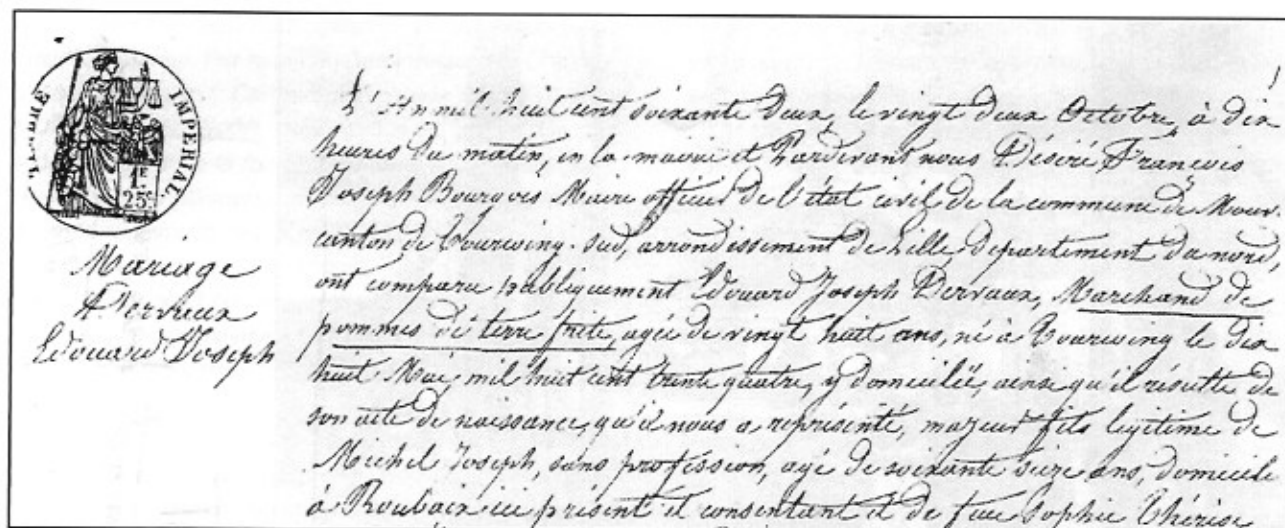 TIMBRE IMPERIAL
1F
25c
Mariage
Dervaux
Edouard Joseph
L'An mil huit cent soixante deux, le vingt deux Octobre, à dix
heures du matin, en la mairie et Pardevant nous Désiré François
Joseph Bourgois Maire officier de l'état civil de la commune de Mour
canton de Tourcoing-sud, arrondissement de Lille, departement du nord,
ont comparu publiquement Edouard Joseph Dervaux, Marchand de
pommes de terre frite, agée de vingt huit ans, né à Tourcoing le dix
huit Mai, mil huit cent trente quatre, y domicilié, ainsi qu'il résulte de
son acte de naissance, qu'il nous a représenté, majeur fils legitime de
Michel Joseph, sans profession, agé de soixante seize ans, domicile
à Roubaix ici présent et consentant et de feue Sophie Thérèse